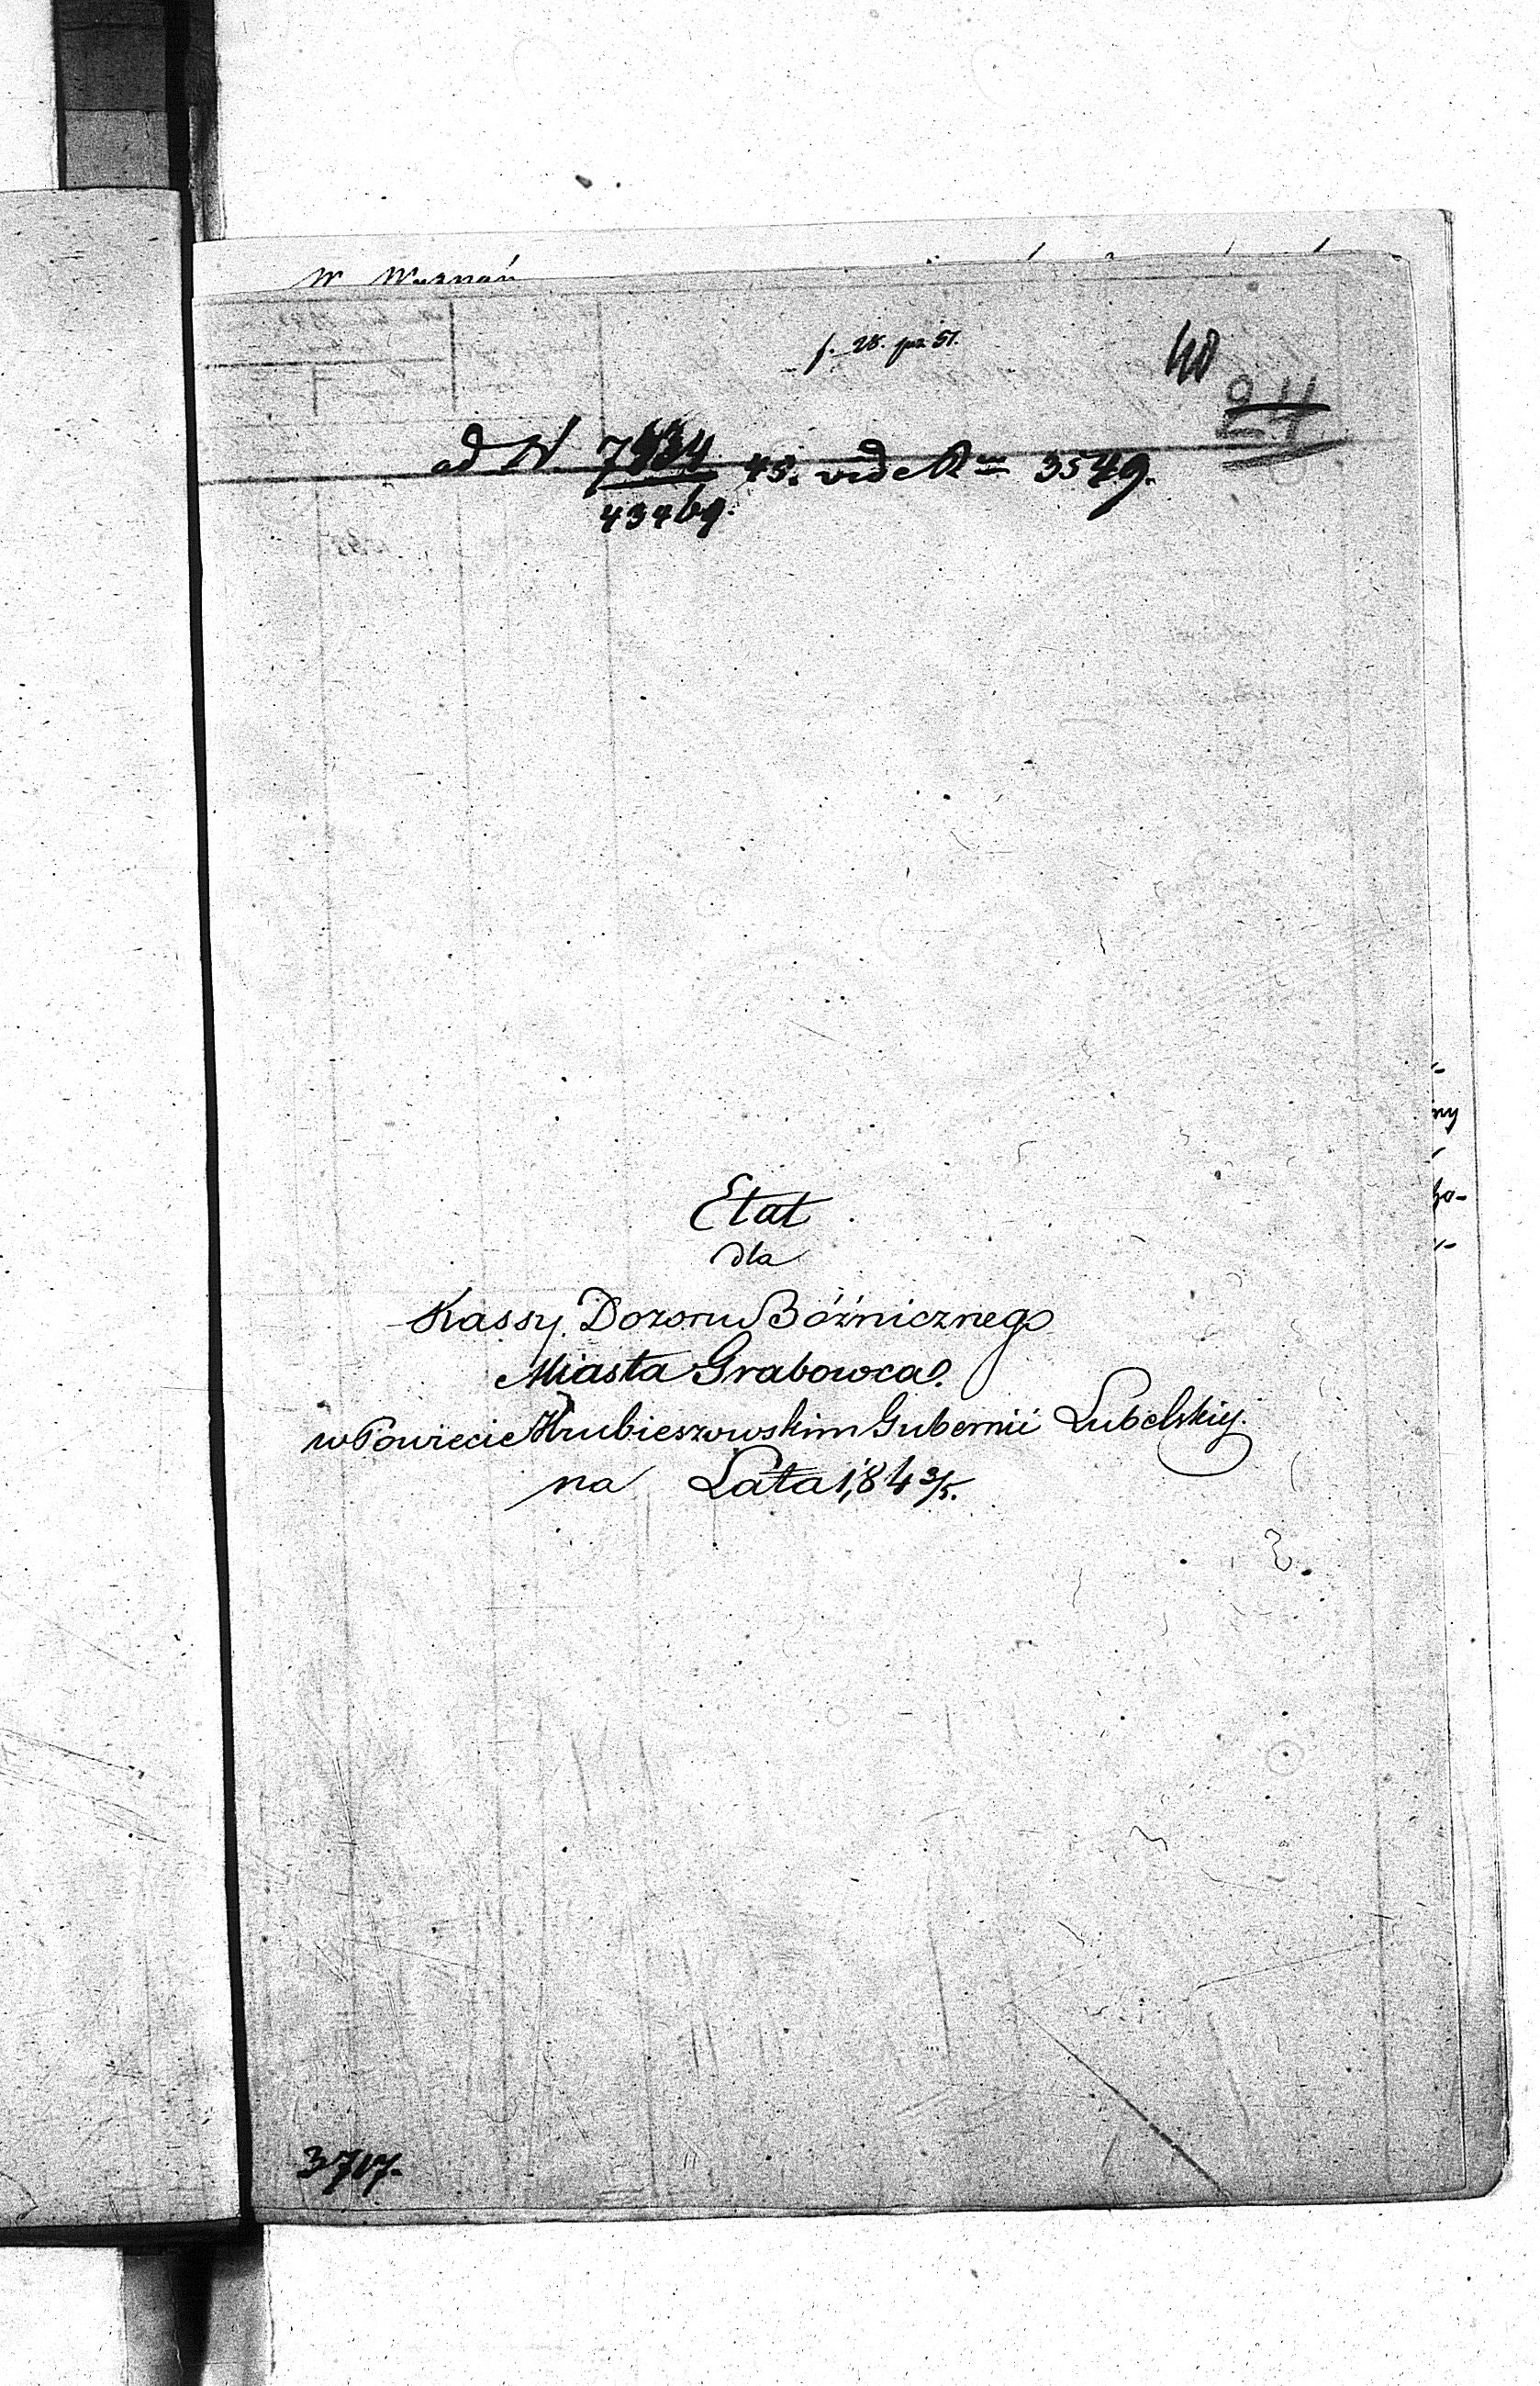 f. 28. pna 51.
40
24
ad N. 7934 / 43469. 43. vide Rm 3549.
Etat
dla
Kassy Dozoru Bóźnicznego
Miasta Grabowca.
w Powiecie Hrubieszowskim Gubernii Lubelskiej.
na Lata 1843/5.
3717.